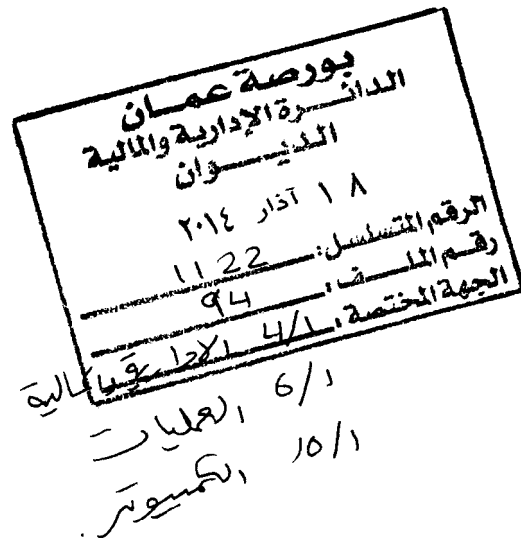 بورصة عمان
الدائرة الإدارية والمالية
الديوان
١٨ آذار ٢٠١٤
الرقم المتسلسل: 1122
رقم الملف: 94
الجهة المختصة: 4/1 الادارية والمالية
6/1 العمليات
10/1 الكمبيوتر.